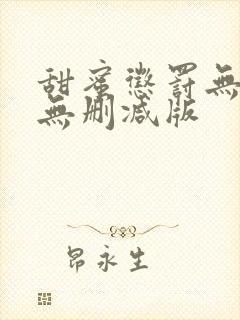 甜蜜懲罰無
無刪減版
昂永生